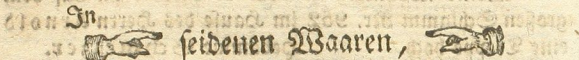 In
seidenen Waaren,